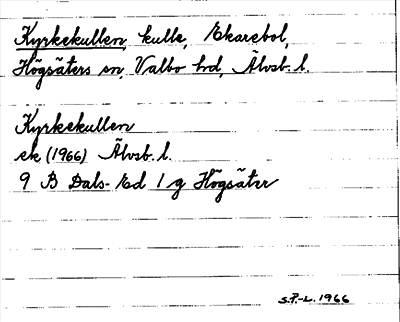 Kyrkekullen, kulle, Ekarebol,
Högsäters sn, Valbo hd, Älvsb. l.
Kyrkekullen
ek (1966) Älvsb. l.
9 B Dals-Ed 1 g Högsäter
S.P.-L. 1966